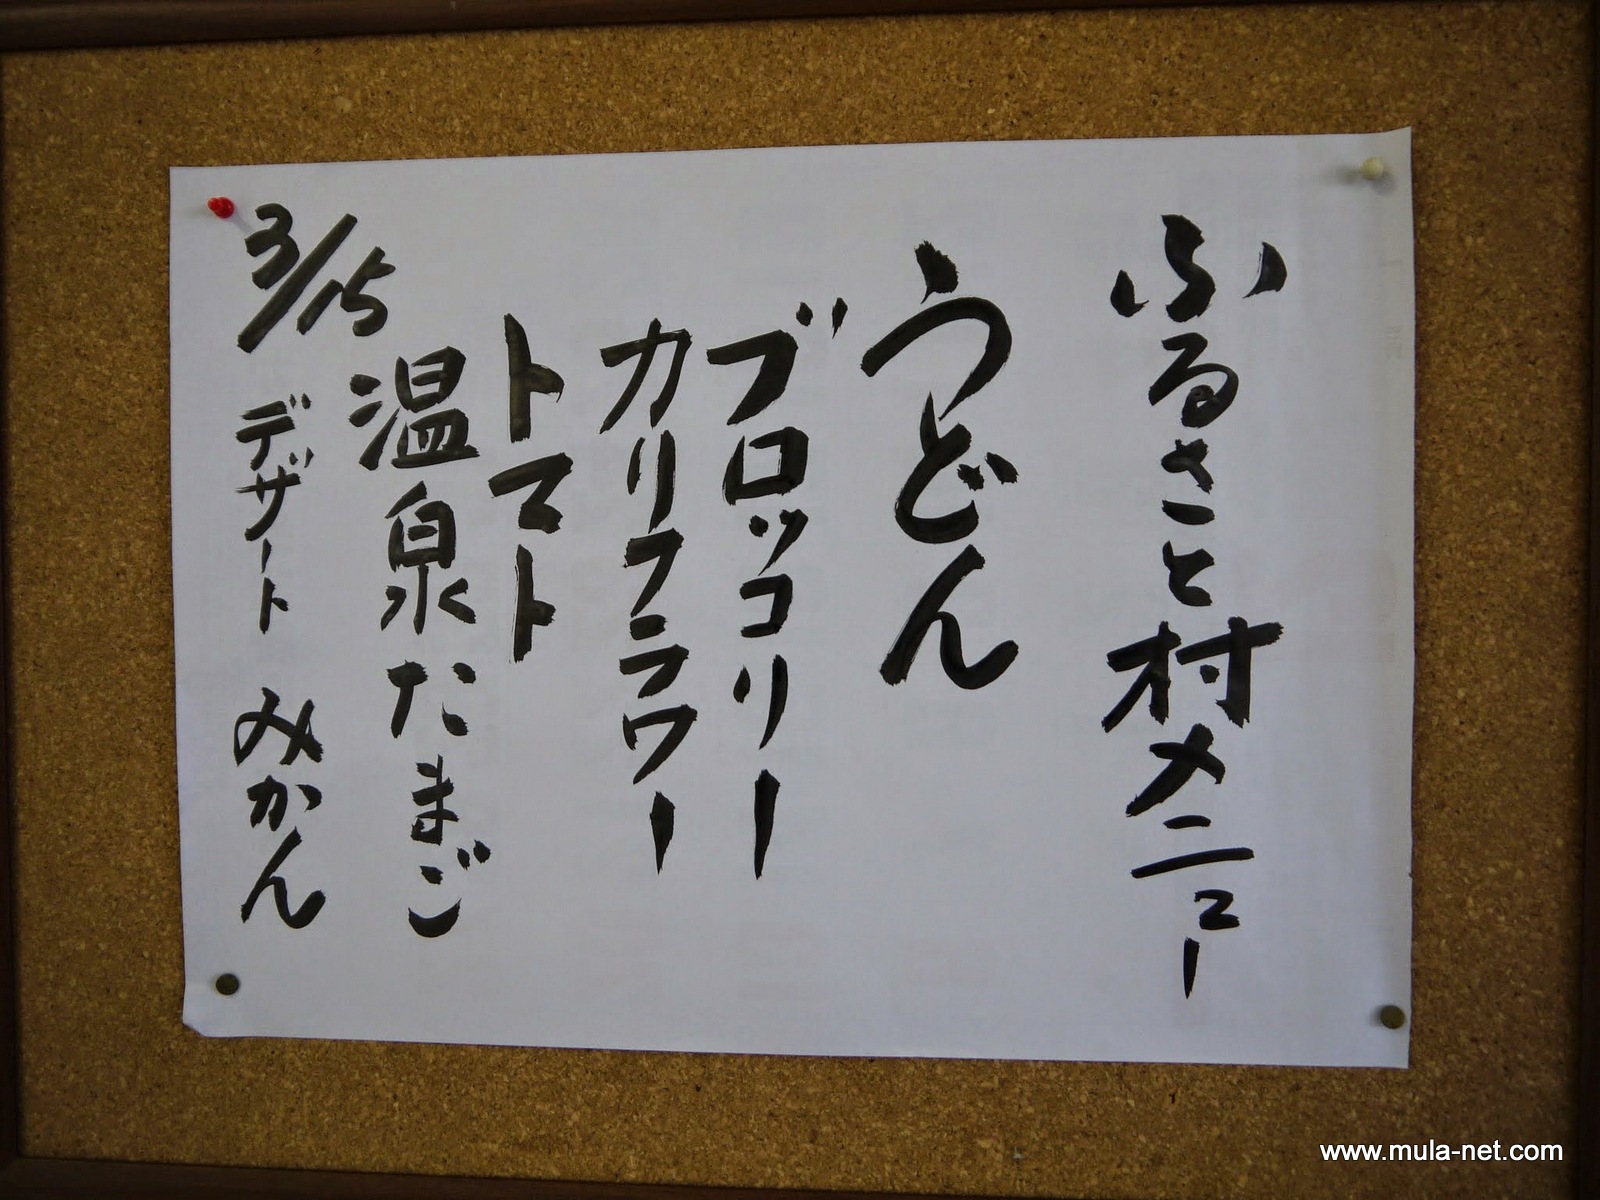 ふるさと村メニュー
うどん
ブロッコリー
カリフラワー
トマト
温泉たまご
3/15
デザート みかん
www.mula-net.com